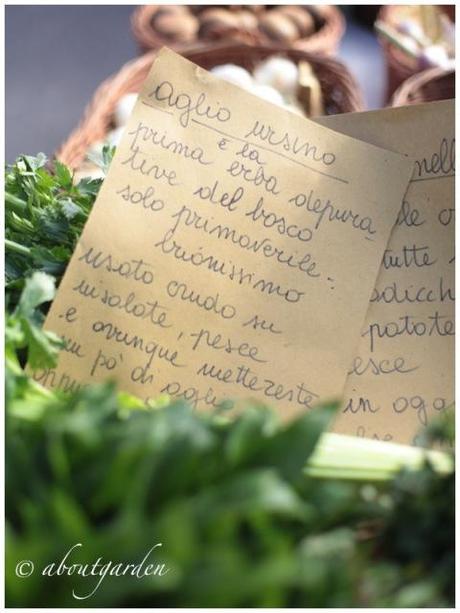 aglio ursino
è la
prima erba depura
tive del bosco
solo primaverile -
briónissimo
usato crudo su
insalate, pesce
e ovunque mettereste
un pò di aglio
nell
le
tutte
odicch
patate
esce
in ogg
© aboutgarden